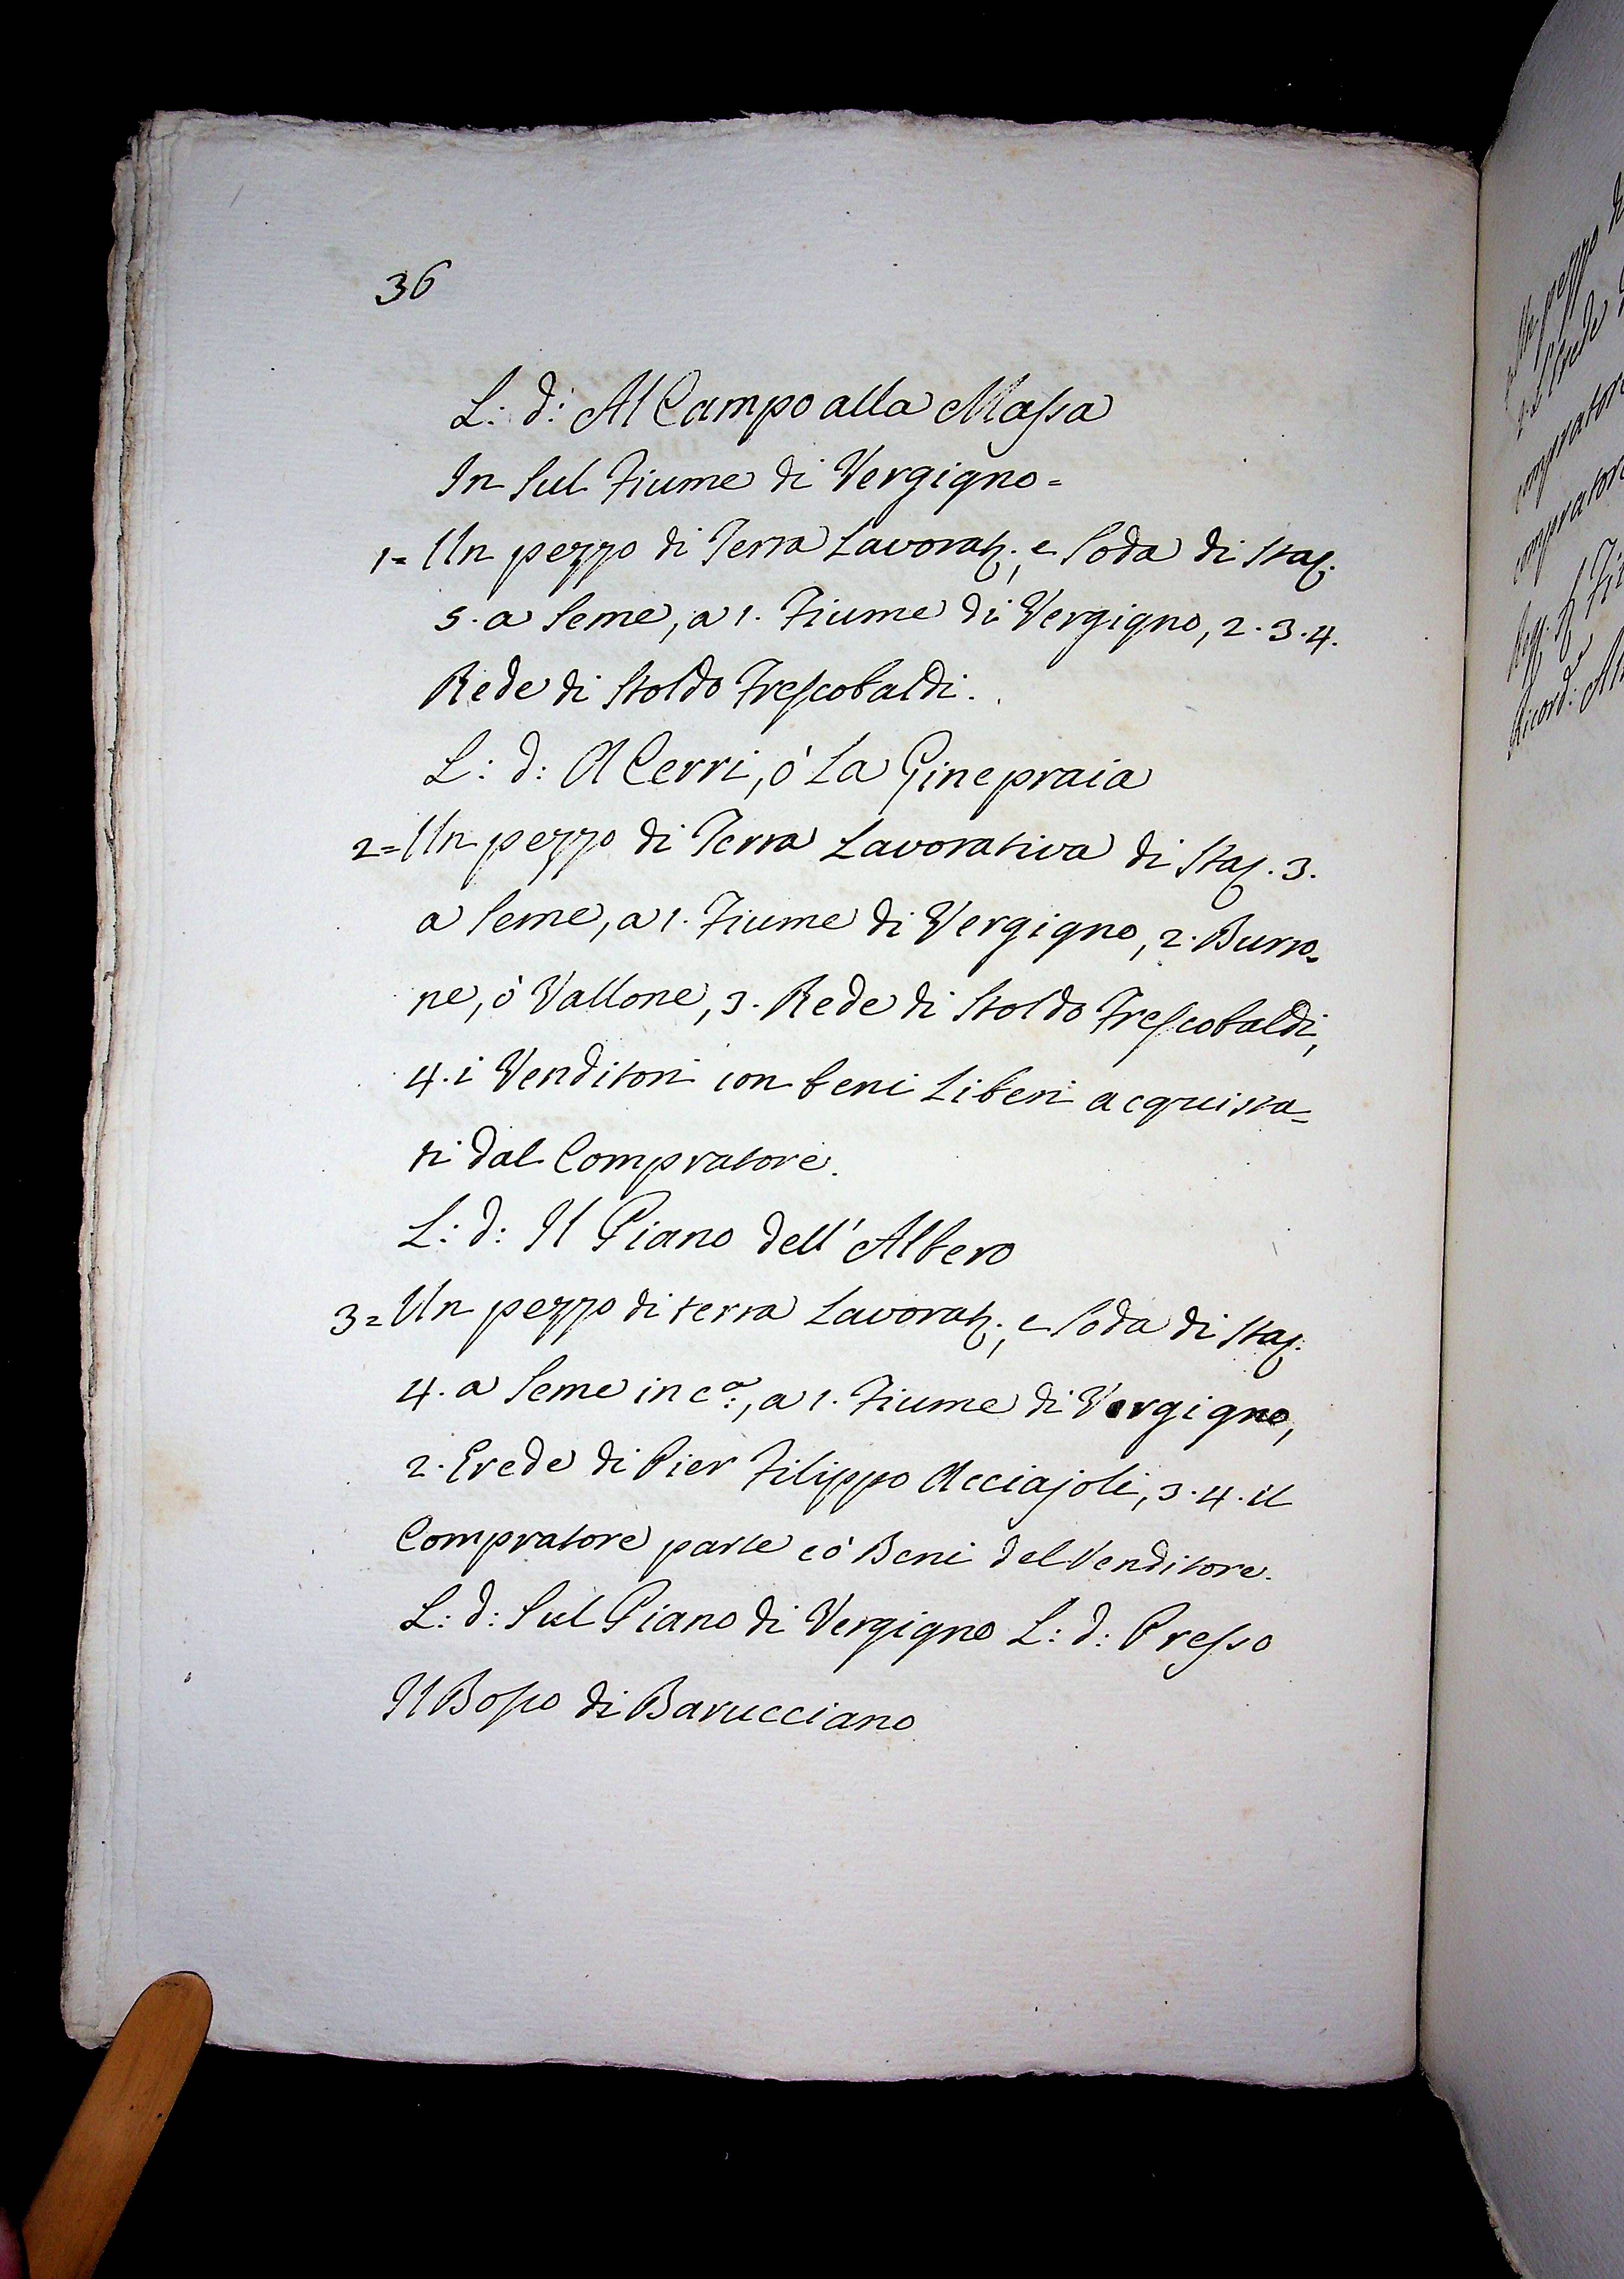 36
L: d: Al Campo alla Massa
In sul Fiume di Vergigno=
1= Un pezzo di Terra Lavorat:, e soda di staj:
5. a seme, a 1. Fiume di Vergigno, 2. 3. 4.
Rede di Stoldo Frescobaldi.
L: d: A Cerri, ò La Ginepraia
2= Un pezzo di Terra Lavorativa di staj. 3.
a seme, a 1. Fiume di Vergigno, 2. Burro=
ne, ò Vallone, 3. Rede di Stoldo Frescobaldi,
4. i Venditori con beni Liberi acquista=
ti dal Compratore.
L: d: Il Piano dell' Albero
3= Un pezzo di terra Lavorat:, e soda di staj:
4. a seme in c.ª:, a 1. Fiume di Vergigno,
2. Erede di Pier Filippo Acciajoli, 3. 4. il
Compratore parte cò Beni del Venditore.
L: d: Sul Piano di Vergigno L: d: Presso
Il Bosco di Barucciano
Un pezzo
comprator
comprator
Ricord: Al